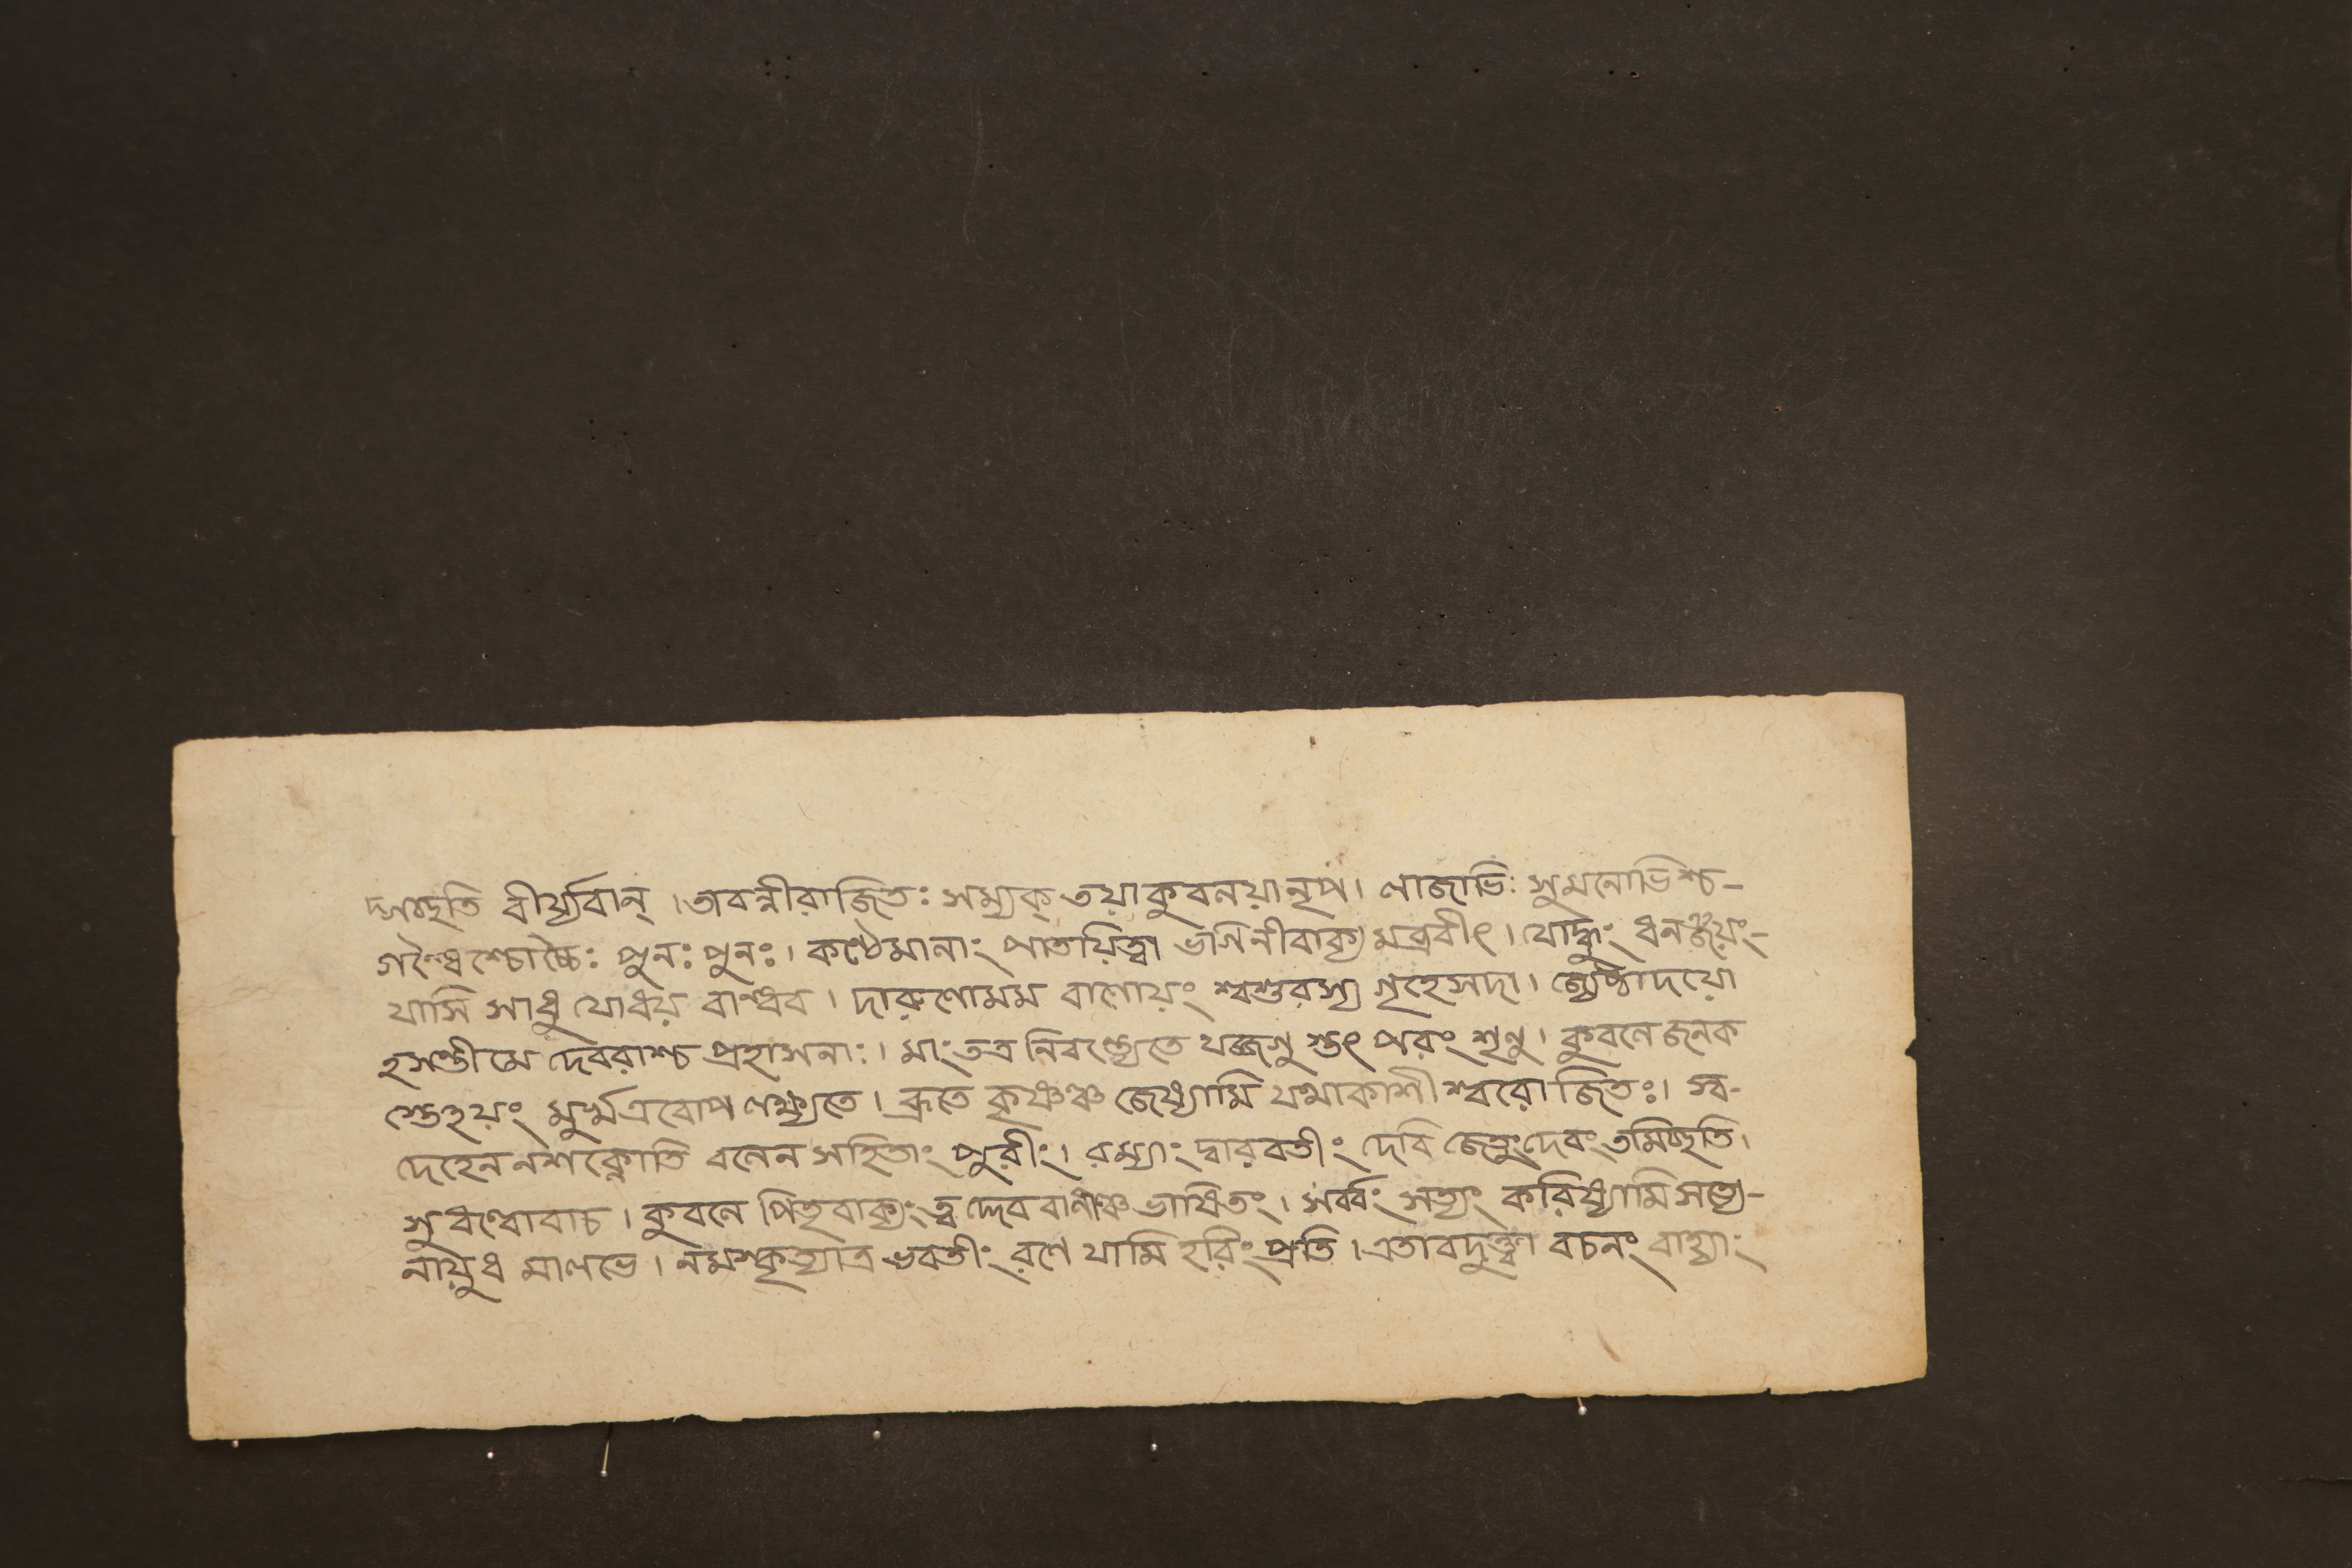 দ্গচ্ছতি বীর্য্যবান্ । তাবন্নীরাজিতঃ সম্যক্ তয়া কুবলয়া নৃপ । লাজাভিঃ সুমনোভিশ্চ-
গন্ধৈশ্চোচ্চৈঃ পুনঃ পুনঃ । কণ্ঠে মালাং পাতয়িত্বা ভগিনী বাক্য মব্রবীৎ । যোদ্ধুং ধনঞ্জয়ং-
যাসি সাধু যোধয় বান্ধব । দারুণো মম বাসোয়ং শ্বশুরস্য গৃহে সদা । জ্যেষ্ঠাদয়ো
হসন্তীমে দেবরাশ্চ প্রহাসনাঃ । মাং তত্র শৃণু । কুবলে জনক
স্তেহয়ং মুর্খ এবোপ লক্ষ্যতে । ব্রূতে কৃষ্ণঞ্চ জেষ্যামি যথা কাশীশ্বরো জিতঃ । স্ব-
দেহেন ন শক্নোতি বলেন সহিতাং পুরীং । রম্যাং দ্বারবতীং দেবি জেতুং দেবং তমিচ্ছতি ।
সুধন্বোবাচ । কুবলে পিতৃবাক্যং ত্ব দ্দেব রাণাঞ্চ ভাষিতং । সর্ব্বং সত্যং করিষ্যামি সত্যে-
নায়ুধ মালভে । নমস্কৃত্যাত্র ভবতীং রণে যামি হরিং প্রতি । এতাবদুক্ত্বা বচনং বাহ্যাং